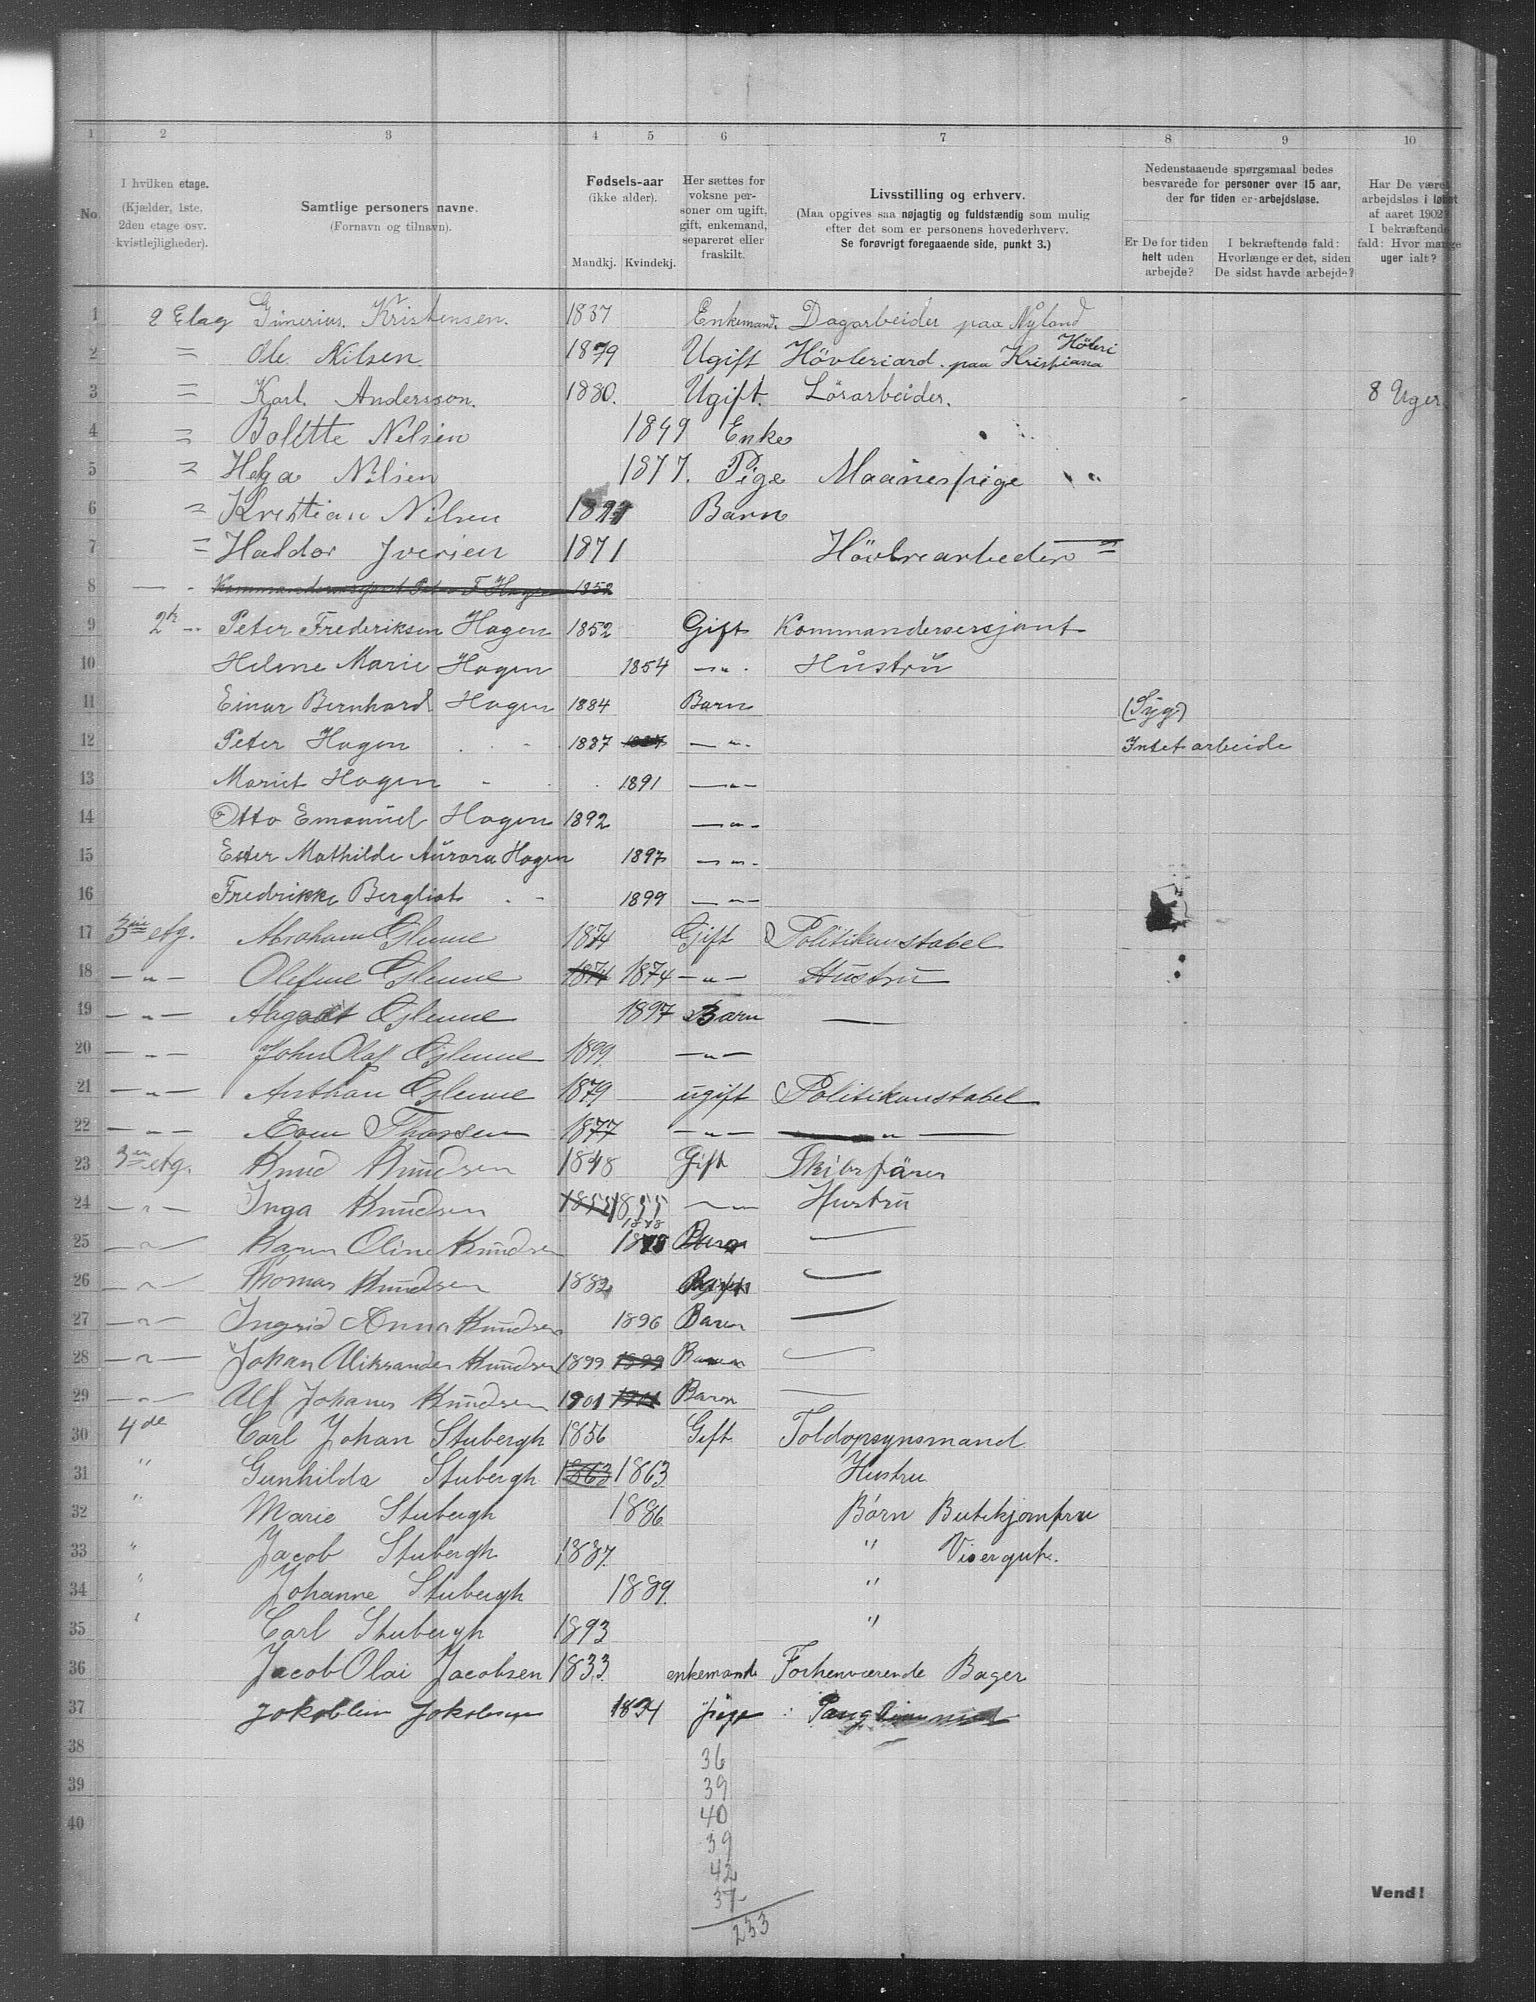 1 2 3 4 5 6 7 8 9 10
No.
I hvilken etage.
(Kjælder, 1ste,
2den etage osv.
kvistlejligheder).
Samtlige personers navne.
(Fornavn og tilnavn).
Fødsels-aar
(ikke alder).
Mandkj. Kvindekj.
Her sættes for
voksne per-
soner om ugift,
gift, enkemand,
separeret eller
fraskilt.
Livsstilling og erhverv.
(Maa opgives saa nøjagtig og fuldstændig som mulig
efter det som er personens hovederhverv.
Se forøvrigt foregaaende side, punkt 3.)
Nedenstaaende spørgsmaal bedes
besvarede for personer over 15 aar,
der for tiden er arbejdsløse.
Er De for tiden
helt uden
arbejde?
I bekræftende fald:
Hvorlænge er det, siden
De sidst havde arbejde?
Har De været
arbejdsløs i løbet
af aaret 1902?
I bekræftende
fald: Hvor mange
uger ialt?
1 2 Etag Kristensen. 1837 Enkemand Dagarbeider paa Nyland
2 = Ole Nilsen 1879 Ugift Hövleriard. paa Kristiana Höleri
3 = Karl Andersson. 1880. Ugift. Lösarbeider. 8 Uger.
4 = Bolette Nilsen 1849 Enke
5 = Helga Nilsen 1877. Pige Maanespige "
6 = Kristian Nilsen Barn
7 = Haldor Iversen 1871 Hövlrearbeder
8 — " Kommandersersjant Peter F Hagen 1852
9 2de — Peter Frederiksen Hagen 1852 Gift Kommandersersjant
10 Helene Marie Hagen 1854 —"— Hustru
11 Einar Bernhard Hagen 1884 Barn (Syg)
12 Peter Hagen 1887 —"— Intet arbeide
13 Mariet Hagen 1891 —"—
14 Otto Emanuel Hagen 1892 —"—
15 Ester Mathilde Aurora Hagen 1897 —"—
16 Fredrikke Bergliot " " 1899 —"—
17 3die etg. Abraham Glenne 1874 Gift Politikonstabel
18 —"— Olefine Glenne 1874 1874 —"— Hustru
19 —"— Aagodt Glenne 1897 Barn —
20 —"— John Olaf Glenne 1899 —"—
21 —"— Anthon Glenne 1879 ugift Politikonstabel
22 —"— Even Thorsen 1877 —"— —"—
23 3die etg. Knud Knudsen 1848 Gift Skibsförer
24 —"— Inga Knudsen 1855 1855 —"— Hustru
25 —"— Karen Oline Knudsen 1878 Baren —
26 —"— Thomas Knudsen 1882 —
27 —"— Ingrid Anna Knudsen 1896 Baren —
28 —"— Johan Aliksander Knudsen 1899 1899 Baren —
29 —"— Alf Johanes Knudsen 1901 1901 Baren —
30 4de Carl Johan Stubergh 1856 Gift Toldopsynsmand
31 " Gunhilda Stubergh 1863 1863 Hustru
32 " Marie Stubergh 1886 Børn Butikjomfru
33 " Jacob Stubergh 1887. " Visergut.
34 " Johanne Stubergh 1889. "
35 " Carl Stubergh 1893 "
36 Jacob Olai Jacobsen 1833 enkemand Forhenværende Bager
37 Jokoblin Jokobsen pige
38
39
40
36
39
40
39
42
37
233
Vend!